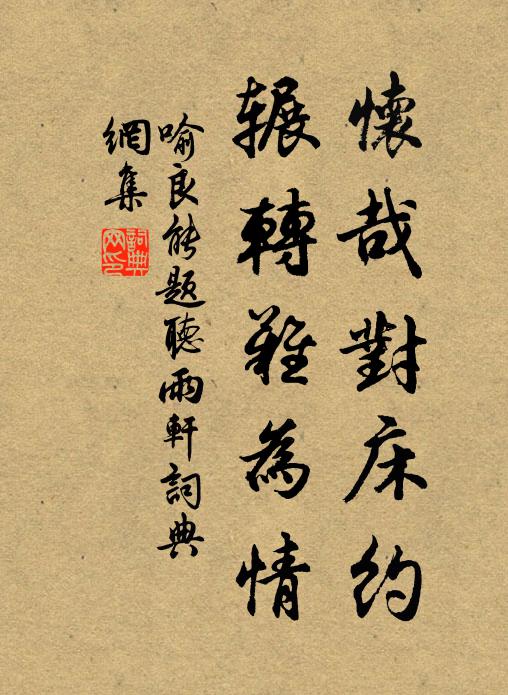 懷哉對床約
輾轉難為情
喻良能題聽雨軒詞典
網集
詞典網印